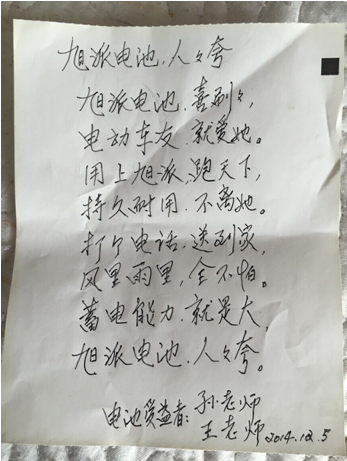 旭派电池.人々夸
旭派电池.喜刷々,
电动车友.就爱她。
用上旭派,跑天下,
持久耐用.不离她。
打个电话.送到家,
风里雨里,全不怕。
蓄电能力.就是大,
旭派电池.人々夸。
电池受益者:孙老师
王老师2014.12.5